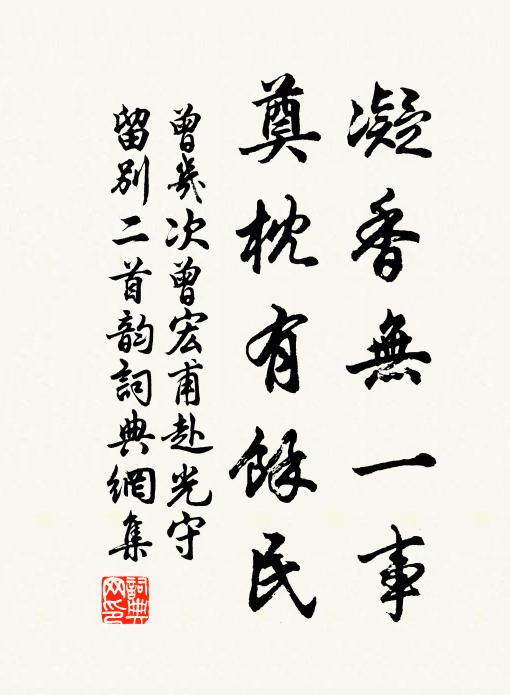 凝香無一事
奠枕有餘民
曾幾次曾宏甫赴光守
留別二首韵詞典網集
詞典網印